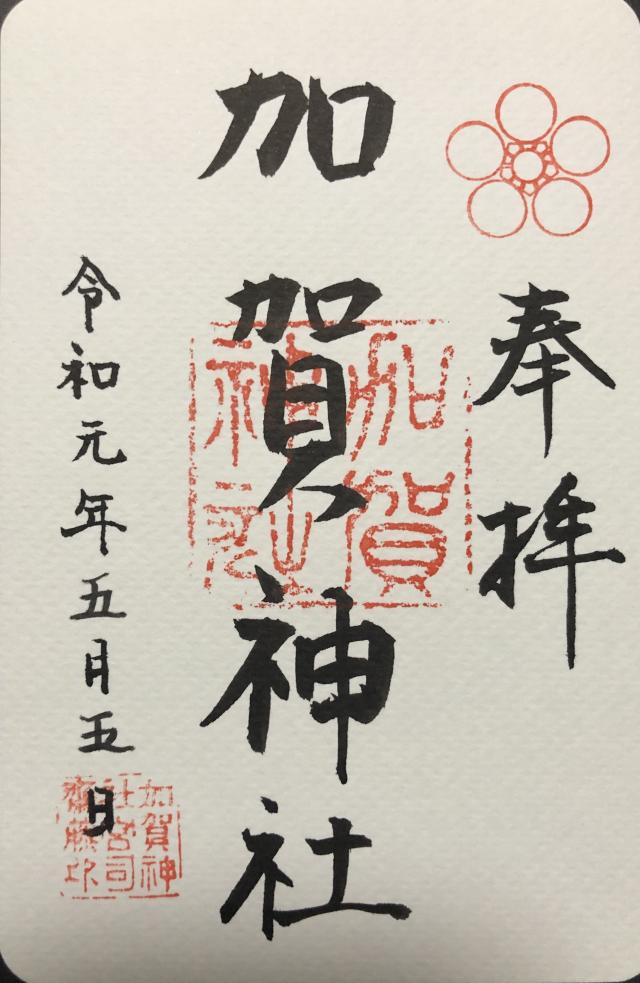 奉拝
加賀神社
加賀
神社
令和元年五月五日
加賀神
社宮司
齋藤印